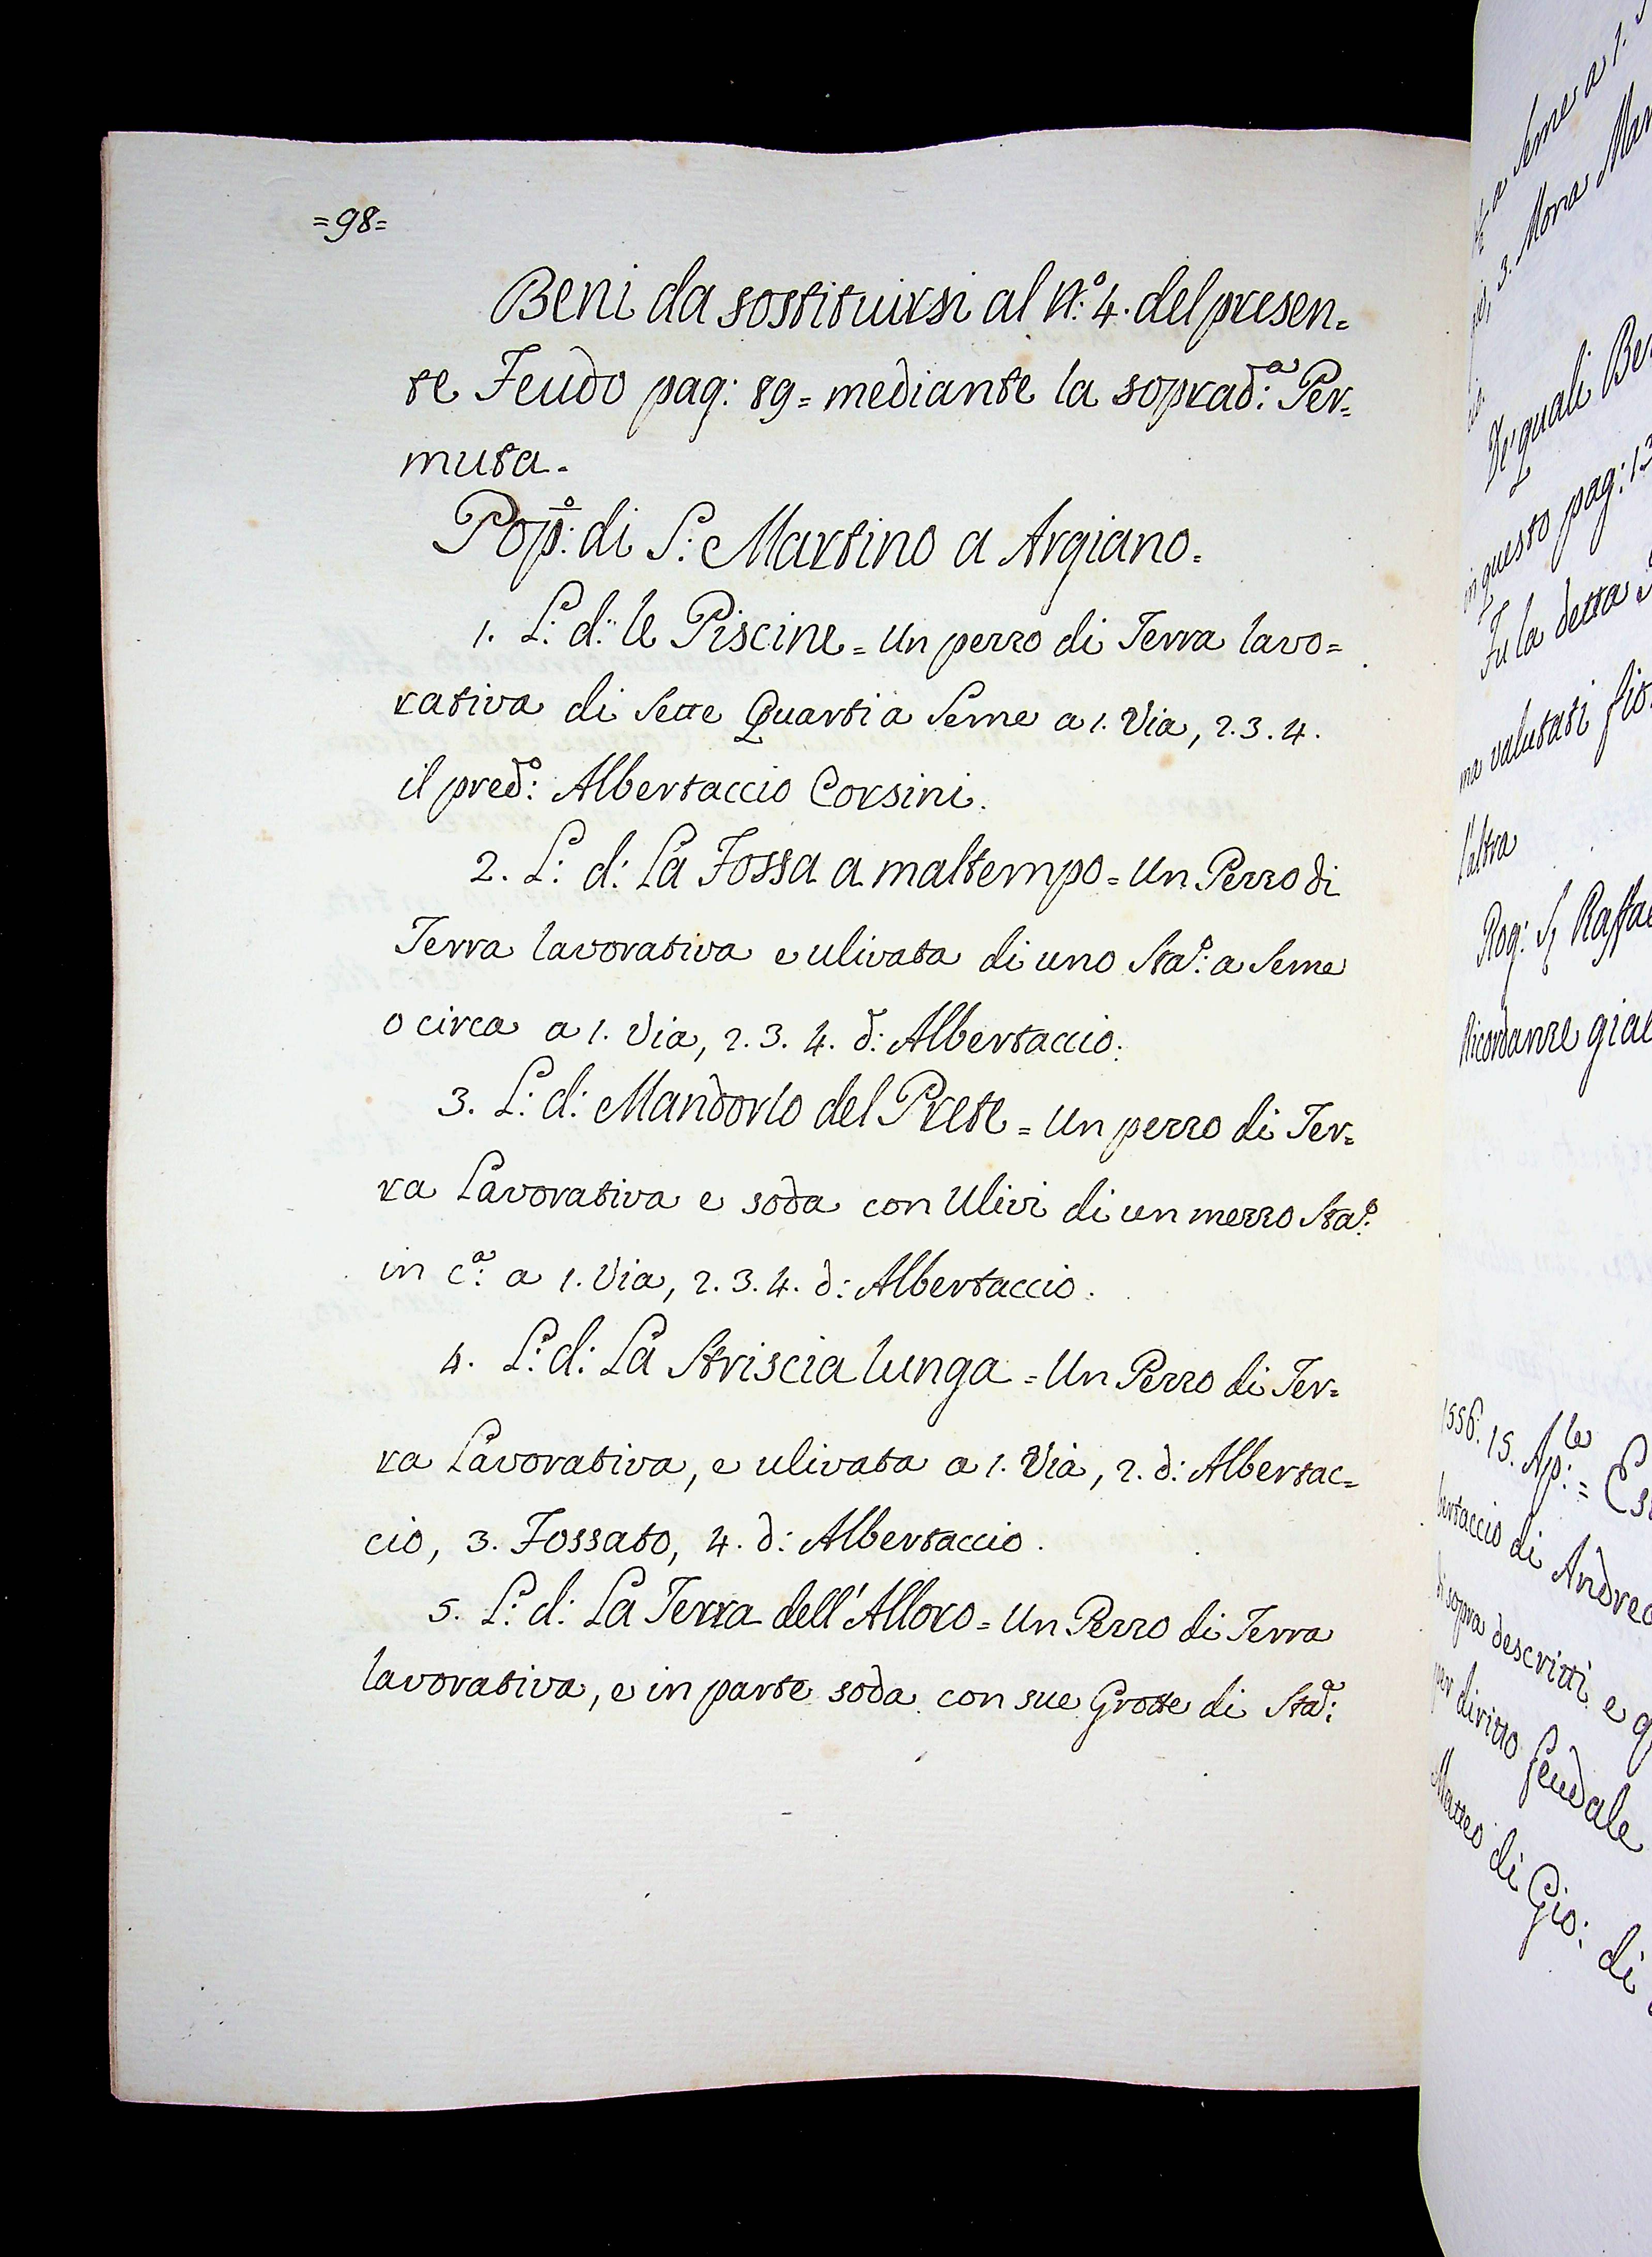 =98=
Beni da sostituirsi al N.º 4. del presen=
te Feudo pag: 89= mediante la soprad:ª Per=
muta.
Pop:º di S: Martino a Argiano.
1. L: d: le Piscine = Un pezzo di Terra lavo=
rativa di Sette Quarti a Seme a 1. Via, 2. 3. 4.
il pred:º Albertaccio Corsini.
2. L: d: La Fossa a maltempo = Un Pezzo di
Terra lavorativa e ulivata di uno Sta:º a Seme
o circa a 1. Via, 2. 3. 4. d: Albertaccio.
3. L: d: Mandorlo del Prete = Un pezzo di Ter=
ra Lavorativa e soda con Ulivi di un mezzo Sta:º
in c:ª a 1. Via, 2. 3. 4. d: Albertaccio.
4. L: d: La Striscia lunga = Un Pezzo di Ter=
ra Lavorativa, e ulivata a 1. Via, 2. d: Albertac=
cio, 3. Fossato, 4. d: Albertaccio.
5. L: d: La Terra dell'Alloro = Un Pezzo di Terra
lavorativa, e in parte soda con sue Grotte di Sta:ª
a Seme a 1.
3. Mona
De' quali
in questo pag: 13
Fu la detta
valutati
l'altra
Rog: Raffa
Ricordanze
1556. 15. Ap:le =
bertaccio di Andrea
di sopra descritti e
per diritto feudale
Matteo di Gio: di